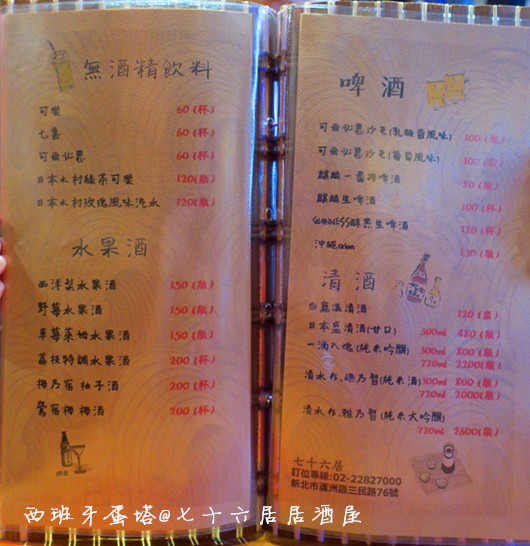 無酒精飲料
可樂 60(杯)
七喜 60(杯)
可爾必思 60(杯)
日本木村綠茶可樂 120(瓶)
日本木村玫瑰風味汽水 120(瓶)
水果酒
西洋梨水果酒 150(瓶)
野莓水果酒 150(瓶)
草莓萊姆水果酒 150(瓶)
荔枝特調水果酒 200(杯)
梅乃宿柚子酒 200(杯)
鶯宿梅梅酒 200(杯)
啤酒
可爾必思沙瓦(乳酸菌風味) 100(瓶)
可爾必思沙瓦(葡萄風味) 100(瓶)
麒麟一番搾啤酒 80(瓶)
麒麟生啤酒 100(杯)
GUINNESS醇黑生啤酒 120(杯)
沖繩orion 130(瓶)
清酒
白鹿溫清酒 120(壺)
日本盛清酒(甘口) 300ml 480(瓶)
一滴入魂(純米吟釀) 300ml 800(瓶)
720ml 2200(瓶)
清水 乃智(純米酒) 300ml 800(瓶)
720ml 2000(瓶)
清水 乃智(純米大吟釀)
720ml 2600(瓶)
七十六居
訂位專線:02-22827000
新北市蘆洲區三民路76號
西班牙蛋塔@七十六居居酒屋